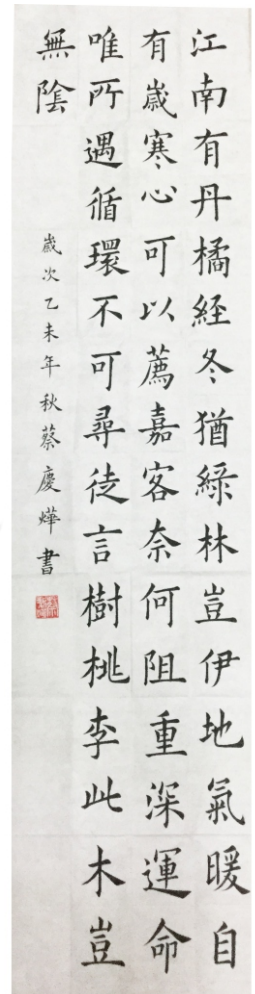 江南有丹橘経冬猶綠林豈伊地氣暖自
有歲寒心可以薦嘉客奈何阻重深運命
唯所遇循環不可尋徒言樹桃李此木豈
無陰
歲次乙未年秋蔡慶燁書